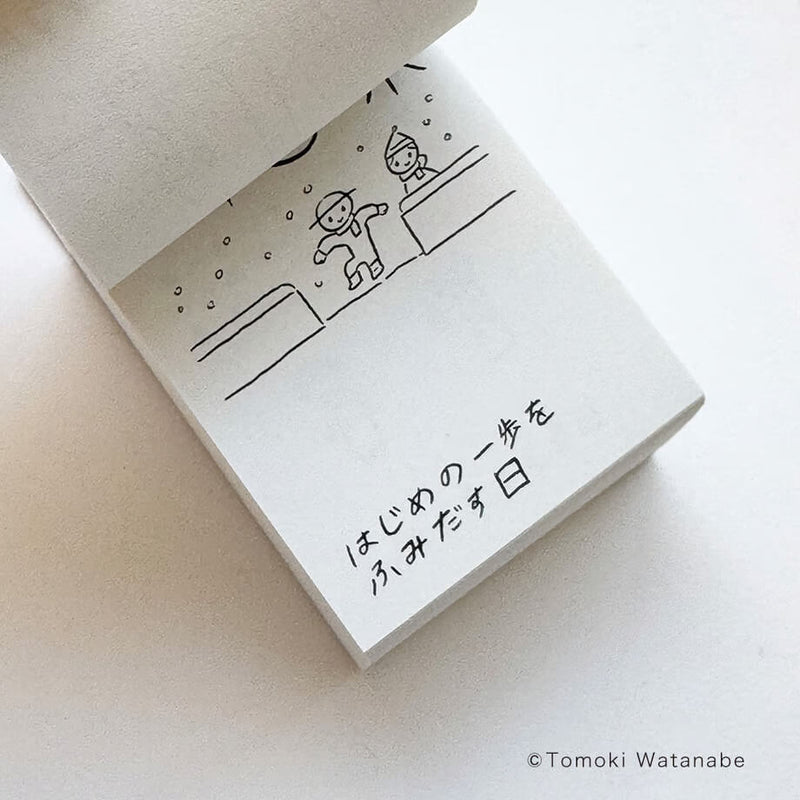 はじめの一歩を
ふみだす日
©Tomoki Watanabe